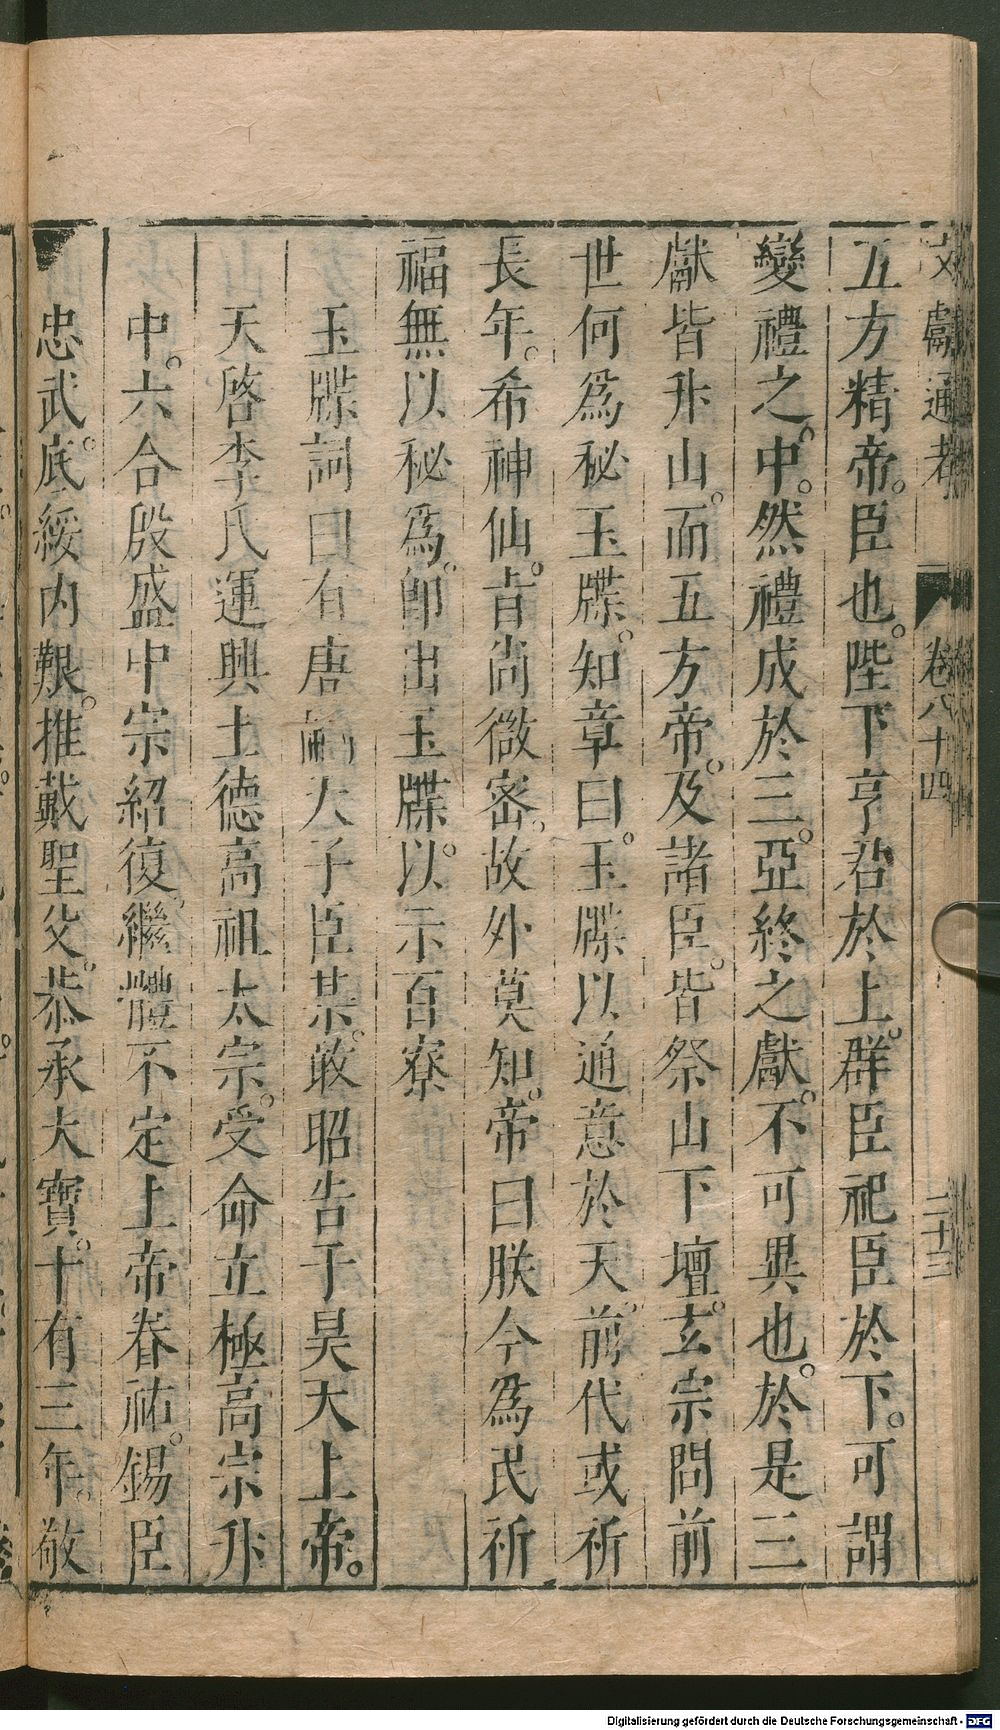 文獻通考 卷八十四 二十三
五方精帝。臣也。陛下亨君於上。群臣祀臣於下。可謂
變禮之中。然禮成於三。亞終之獻。不可異也。於是三
獻皆升山。而五方帝。及諸臣。皆祭山下壇。玄宗問前
世何爲秘玉牒。知章曰。玉牒以通意於天。前代或祈
長年。希神仙。旨尚微密。故外莫知。帝曰朕今爲民祈
福無以秘爲。卽出玉牒。以示百寮
玉牒詞曰有唐嗣天子臣某。敢昭告于昊天上帝。
天啓李氏運興土德高祖太宗。受命立極高宗升
中。六合殷盛中宗紹復。繼體不定上帝眷祐。錫臣
忠武。底綏內艱。推戴聖父。恭承大寶。十有三年。敬
Digitalisierung gefördert durch die Deutsche Forschungsgemeinschaft - DFG